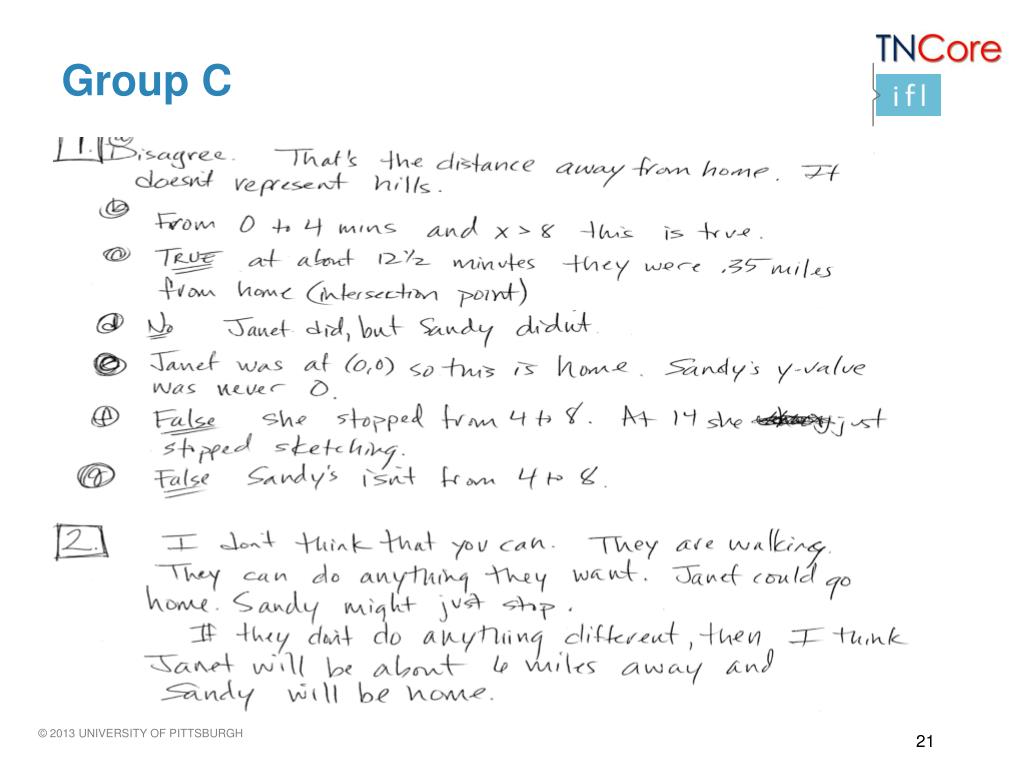 Group C
TNCore
ifl
1. (a) Disagree. That's the distance away from home. It
doesn't represent hills.
(b)
From 0 to 4 mins and x > 8 this is true.
(c) TRUE at about 12½ minutes they were .35 miles
from home (intersection point)
(d) No Janet did, but Sandy didn't.
(e) Janet was at (0,0) so this is home. Sandy's y-value
was never 0.
(f) False she stopped from 4 to 8. At 14 she just
stopped sketching.
(g) False Sandy's isn't from 4 to 8.
2. I don't think that you can. They are walking.
They can do anything they want. Janet could go
home. Sandy might just stop.
If they don't do anything different, then I think
Janet will be about 6 miles away and
Sandy will be home.
© 2013 UNIVERSITY OF PITTSBURGH
21